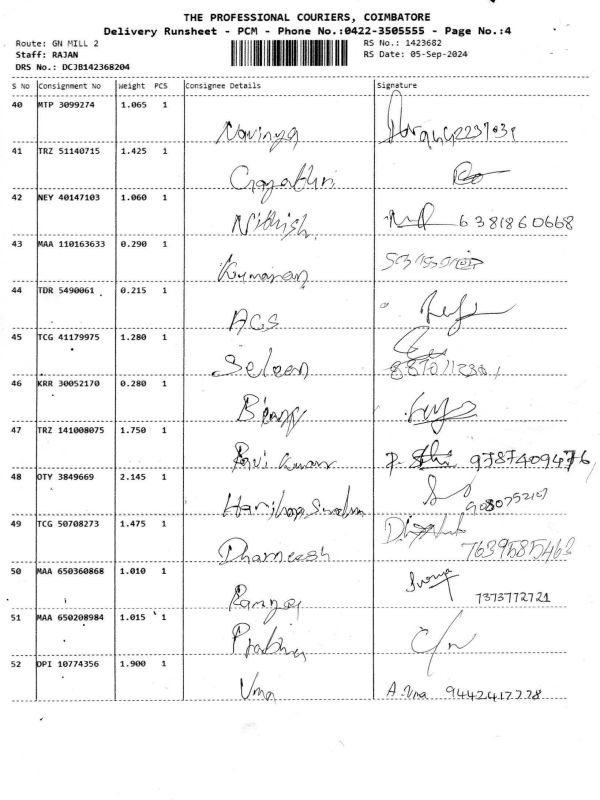 THE PROFESSIONAL COURIERS, COIMBATORE
Delivery Runsheet - PCM - Phone No.:0422-3505555 - Page No.:4
Route: GN MILL 2 RS No.: 1423682
Staff: RAJAN RS Date: 05-Sep-2024
DRS No.: DCJB142368204
S No Consignment No Weight PCS Consignee Details Signature
40 MTP 3099274 1.065 1
41 TRZ 51140715 1.425 1
Gayathri
42 NEY 40147103 1.060 1
Nithish. 6381860668
43 MAA 110163633 0.290 1
Kumaran
44 TDR 5490061 0.215 1
ACS
45 TCG 41179975 1.280 1
Seleen
46 KRR 30052170 0.280 1
47 TRZ 141008075 1.750 1
Ravi Kumar 9787409476
48 OTY 3849669 2.145 1
49 TCG 50708273 1.475 1
Dharneesh 7639585463
50 MAA 650360868 1.010 1
Surya
7373772721
51 MAA 650208984 1.015 1
Prabhu C/n
52 DPI 10774356 1.900 1
Uma A.Uma 9442417778